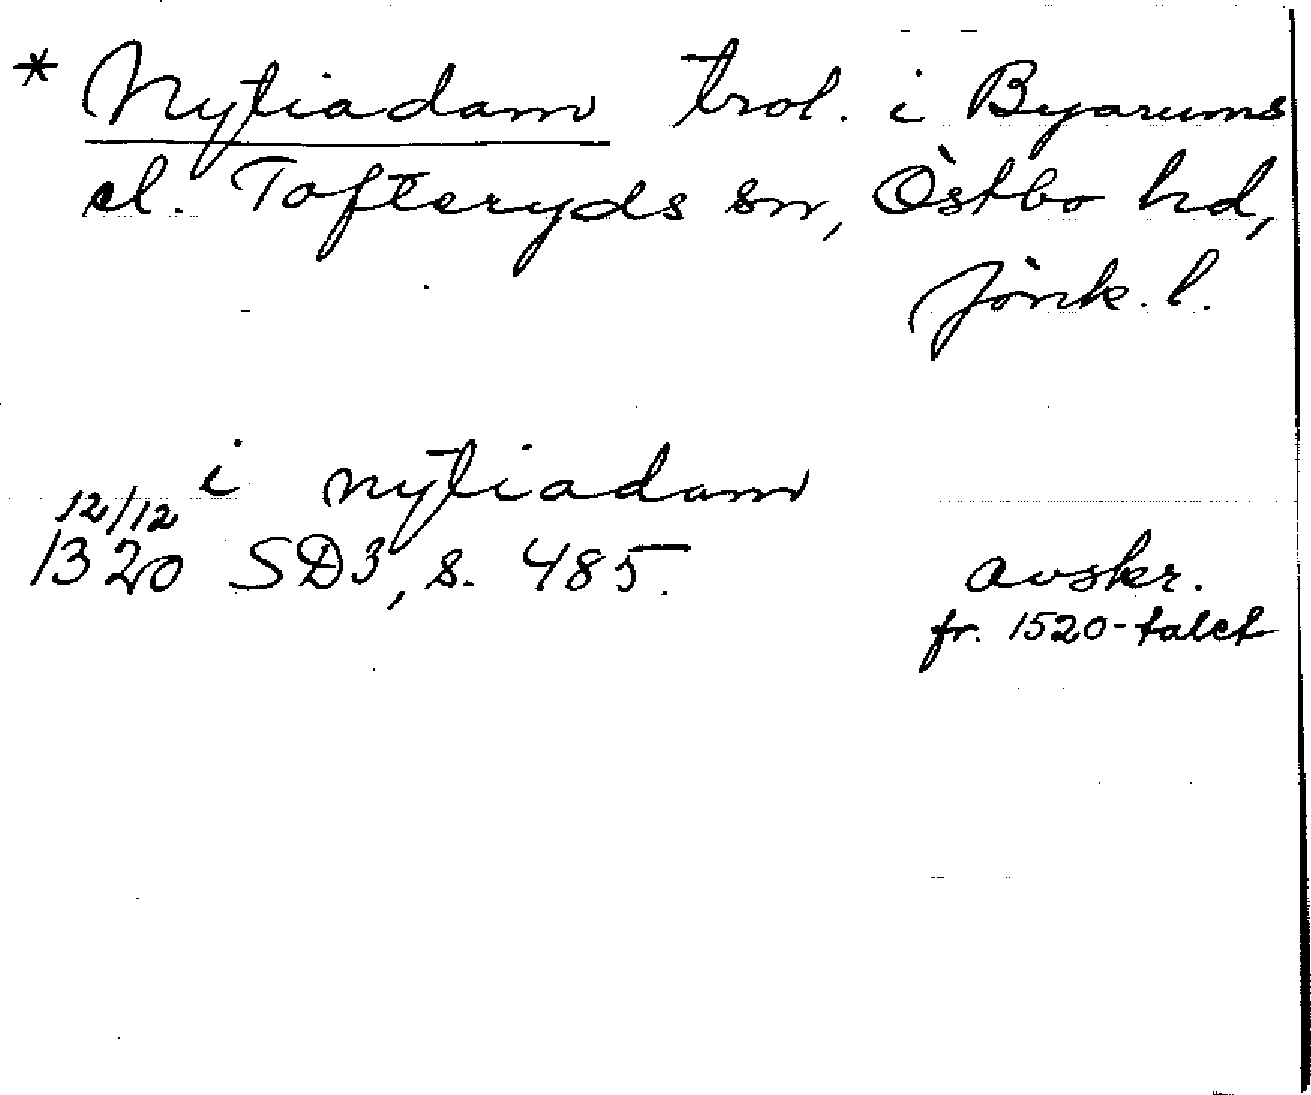 * Nytiadam trol. i Byarums
el. Tofteryds sn, Östbo hd,
Jönk. l.
i nytiadam
12/12
1320 SD3, s. 485. avskr.
fr. 1520-talet